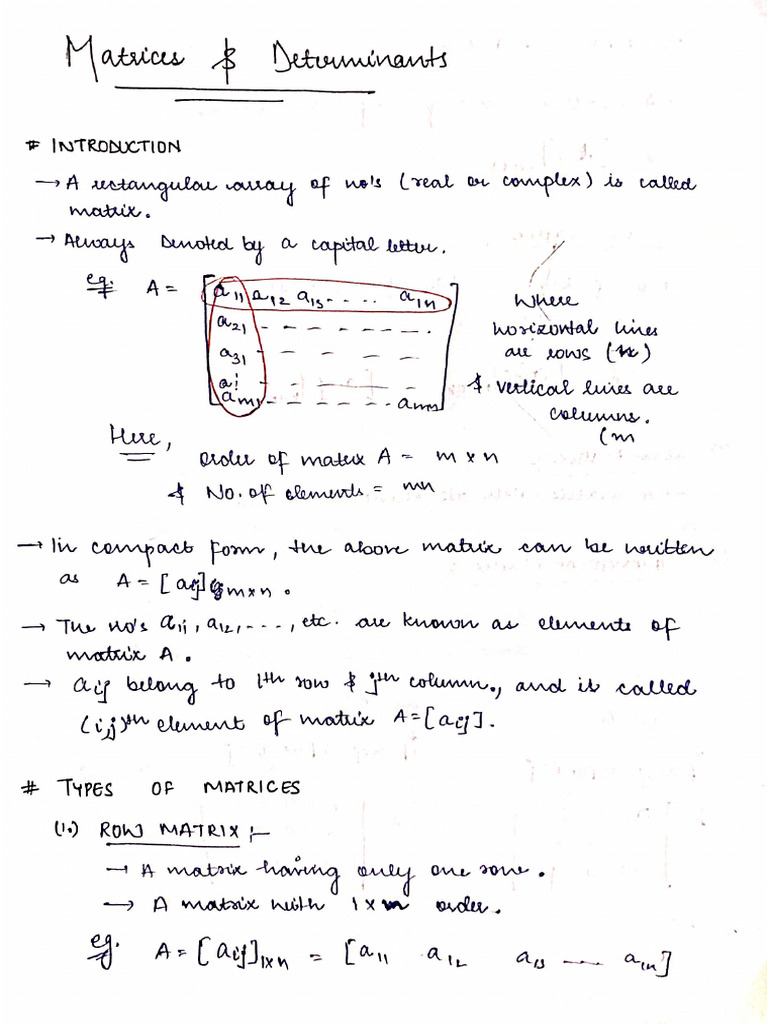 Matrices & Determinants
# INTRODUCTION
→ A rectangular array of no's (real or complex) is called
matrix.
→ Always Denoted by a capital letter.
eg. A = [ a11 a12 a13 - - . . . a1n
a21 - - - - - - - - .
a31 - - - - -
a¦ - - - -
am1 - - - - - - . amn ]
Where
horizontal lines
are rows
& vertical lines are
columns.
(m
Here,
order of matrix A = m x n
& No. of elements = mn
→ In compact form, the above matrix can be written
as A = [aij] m x n .
→ The no's a11, a12, - - -, etc. are known as elements of
matrix A.
→ aij belong to ith row & jth column., and is called
(i,j)th element of matrix A=[aij].
# TYPES OF MATRICES
(1.) ROW MATRIX :-
→ A matrix having only one row.
→ A matrix with 1 x n order.
eg. A = [aij]1xn = [a11 a12 a13 ---- a1n]